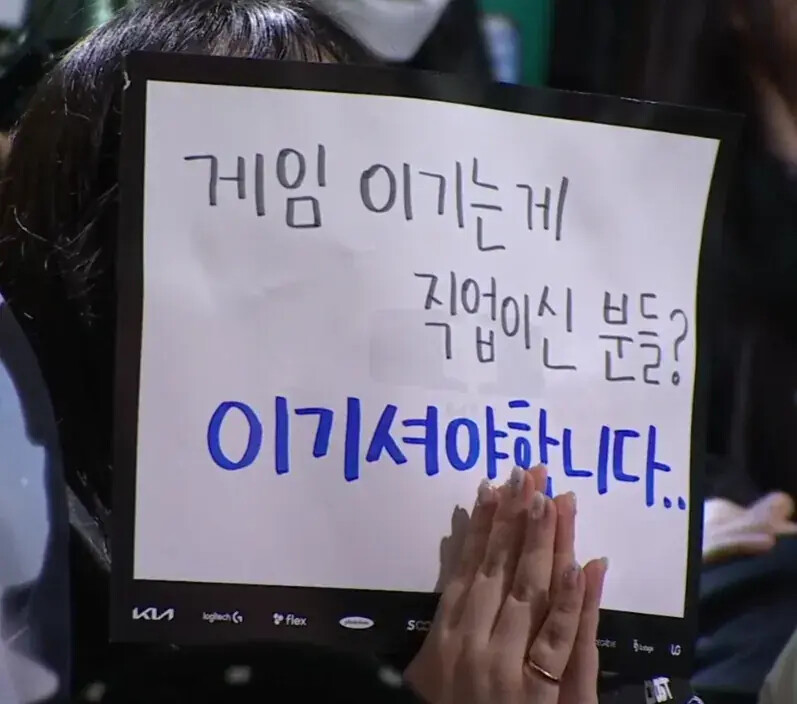 게임 이기는게
직업이신 분들?
이기셔야합니다..
KIA logitech G flex
LG